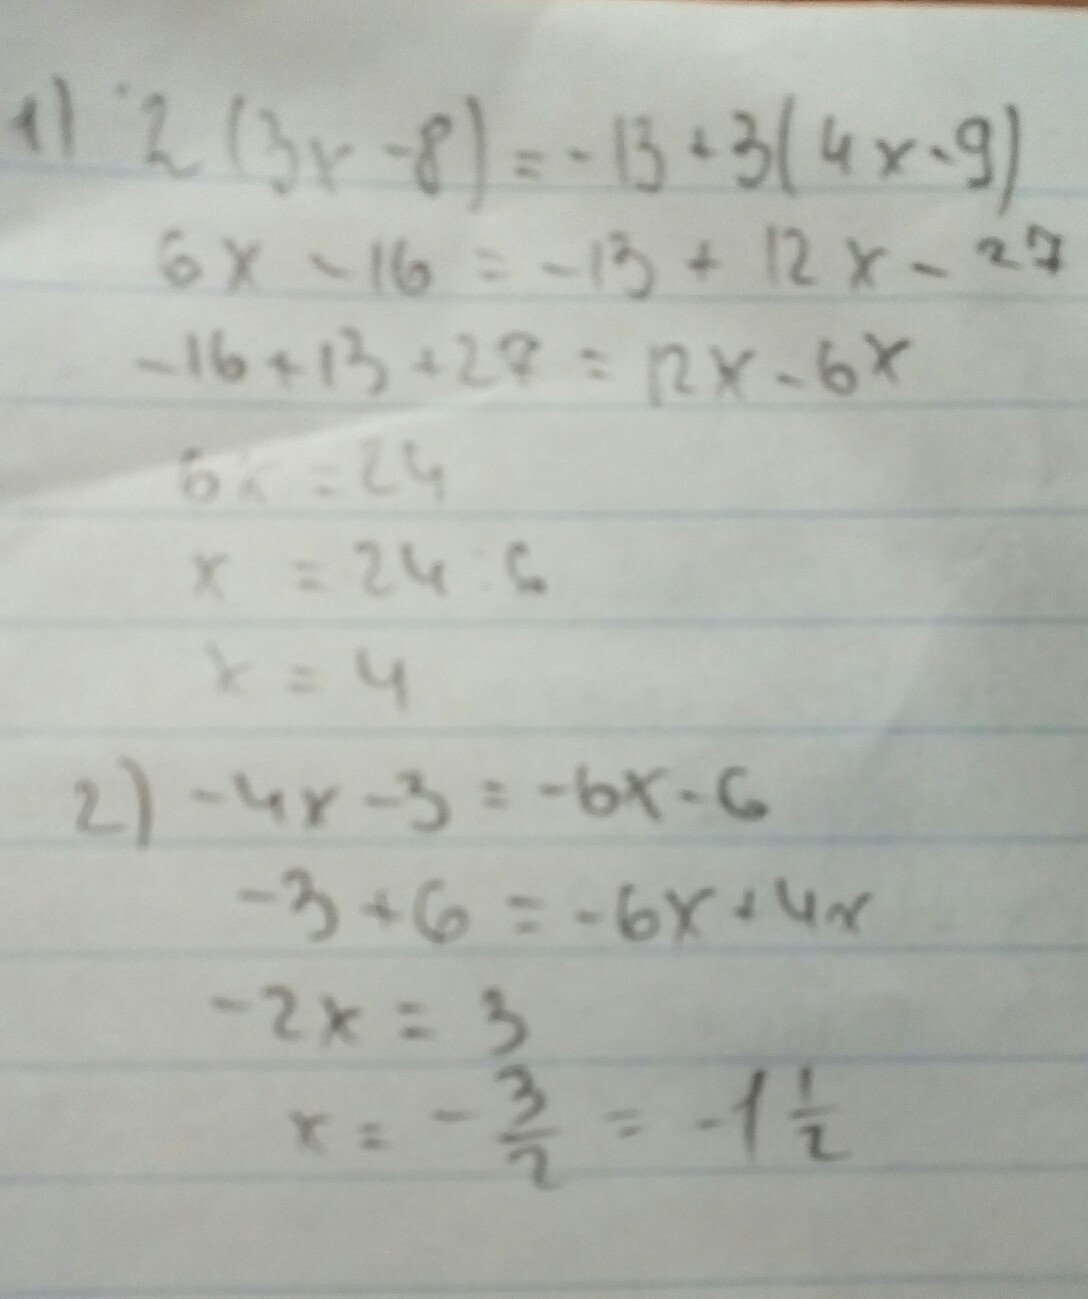 1) 2(3x-8)=-13+3(4x-9)
6x-16=-13+12x-27
-16+13+27=12x-6x
6x=24
x=24:6
x=4
2) -4x-3=-6x-6
-3+6=-6x+4x
-2x=3
x=-3/2=-1 1/2